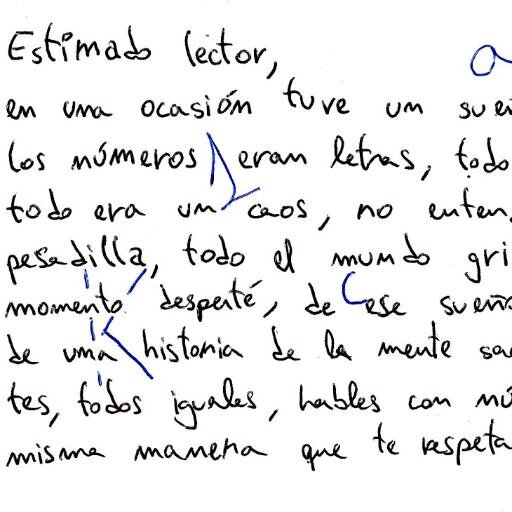 Estimado lector,
en una ocasión tuve un
los números eran letras, todo
todo era un caos, no
pesadilla, todo el mundo
momento desperté, de ese
de una historia de la mente
tes, todos iguales, hables con
misma manera que te respeta